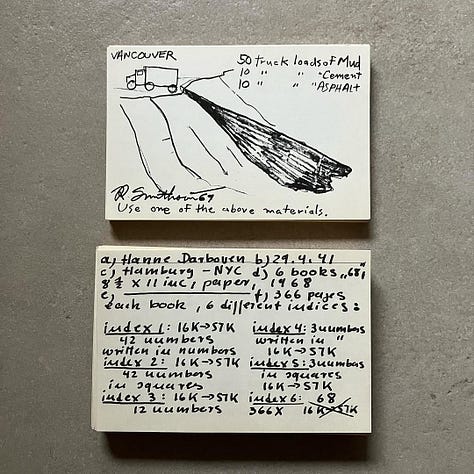 VANCOUVER
50 truck loads of Mud
10 " " " Cement
10 " " " ASPHALT
R Smithson 69
Use one of the above materials.
a, Hanne Darboven b, 29.4.41
c, Hamburg - NYC d, 6 books „68",
8 ½ x 11 inc, paper, 1968
e, f, 366 pages
each book, 6 different indices:
index 1: 16K→57K
42 numbers
written in numbers
index 2: 16K→57K
42 numbers
in squares
index 3: 16K→57K
12 numbers
index 4: 3 numbers
written in "
16K→57K
index 5: 3 numbers
in squares
16K→57K
index 6: 68
366X 16K→57K